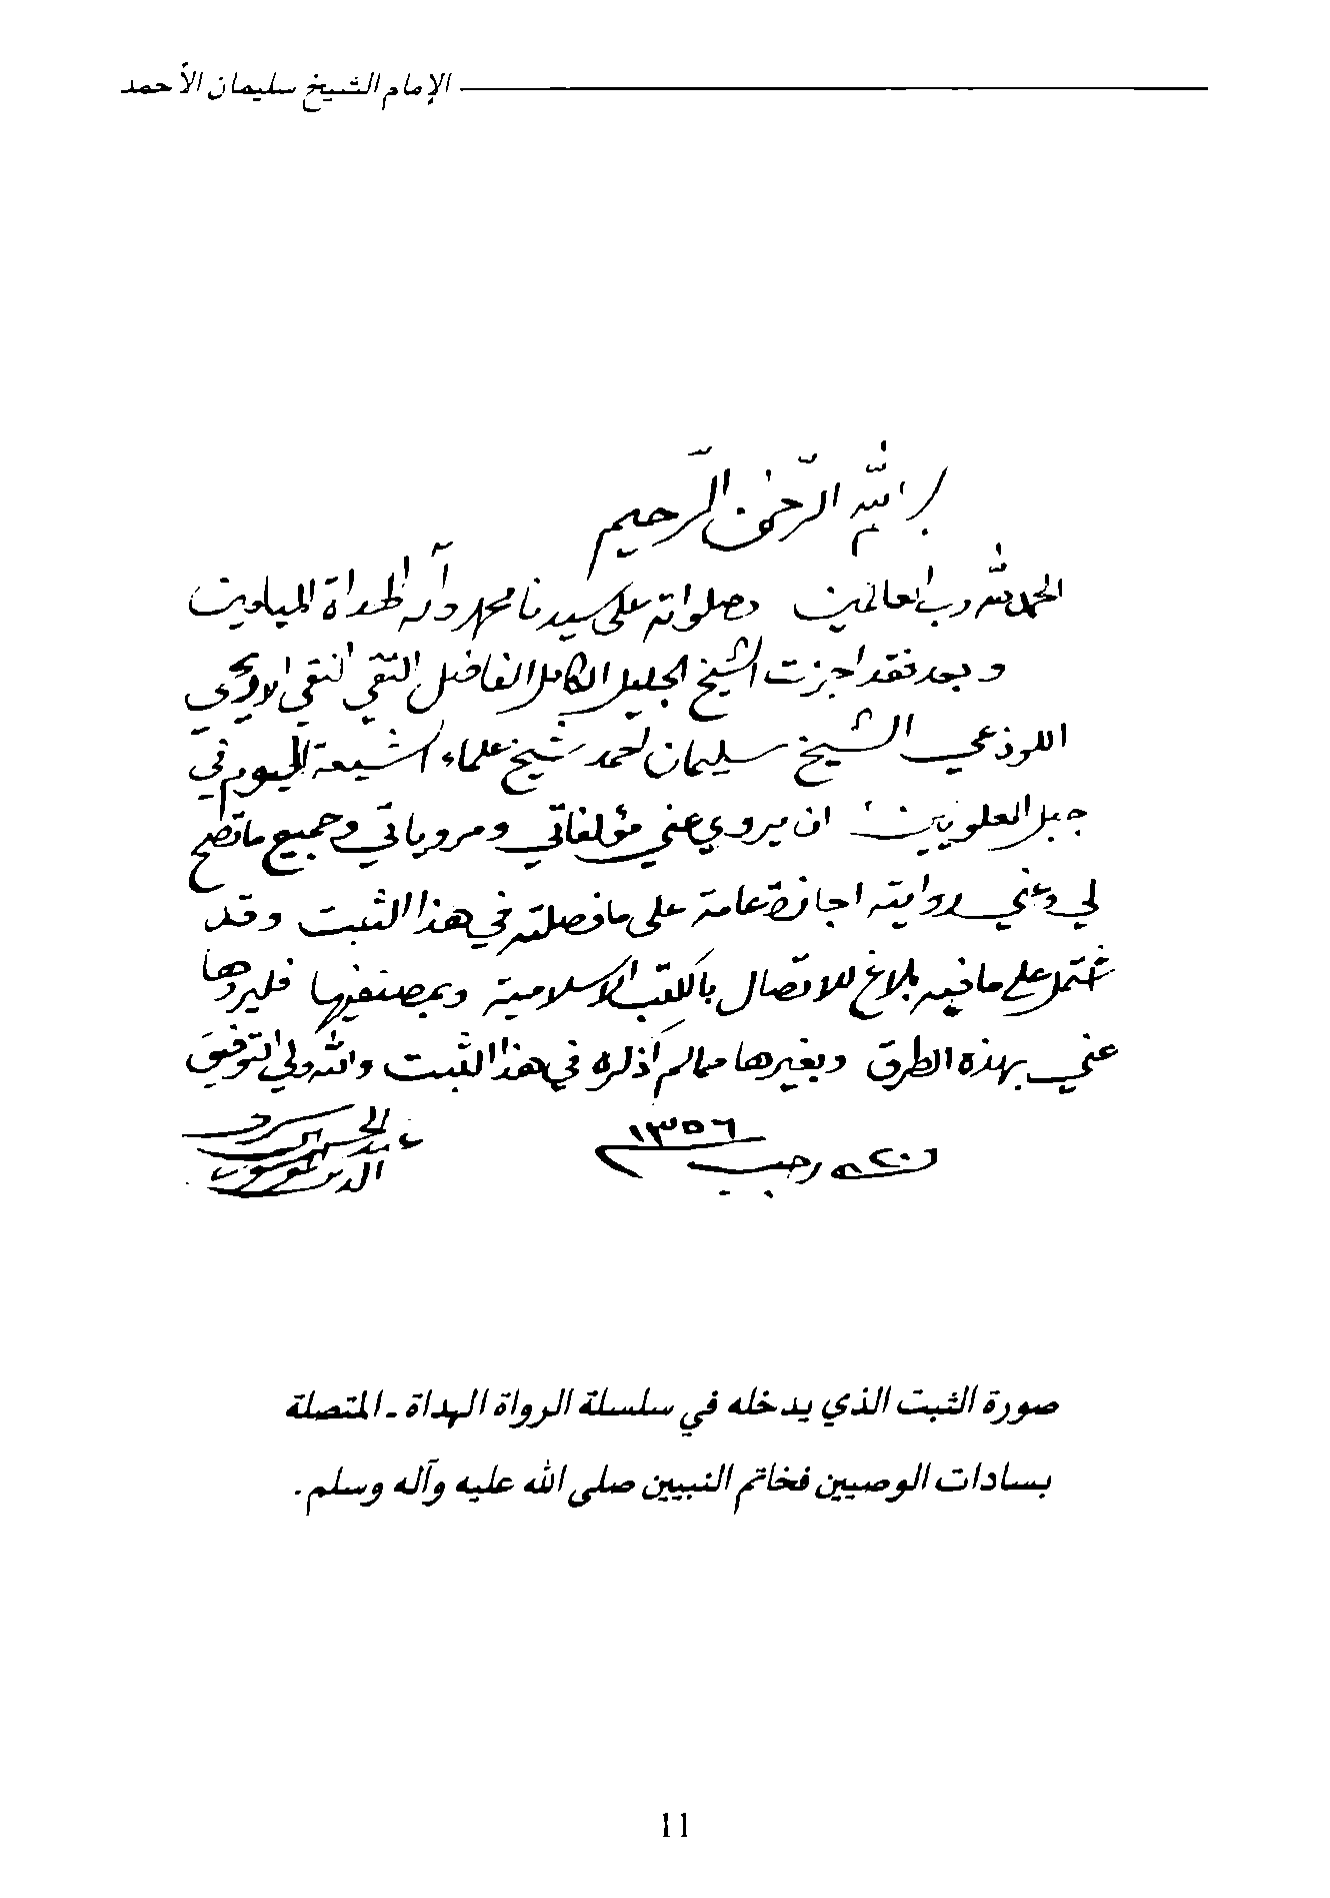 الإمام الشيخ سليمان الأحمد
بسم الله الرّحمٰن الرّحيم
الحمد لله رب العالمين وصلواته على سيدنا محمد وآله الهداة الميامين
وبعد فقد اجزت الشيخ الجليل الكامل الفاضل التقي النقي الاريحي
اللوذعي الشيخ سليمان احمد شيخ علماء الشيعة اليوم في
جبل العلويين ان يروي عني مؤلفاتي ومروياتي وجميع ما تصح
لي وعني روايته اجازة عامة على ما فصلته في هذا الثبت وقد
اشتمل على ما فيه بلاغ للاتصال بالكتب الاسلامية وبمصنفيها فليروها
عني بهذه الطرق وبغيرها مما لم أذكره في هذا الثبت والله ولي التوفيق
في ٢٠ رجب ١٣٥٦
عبد الحسين شرف الدين الموسوي
صورة الثبت الذي يدخله في سلسلة الرواة الهداة - المتصلة
بسادات الوصيين فخاتم النبيين صلى الله عليه وآله وسلم.
11